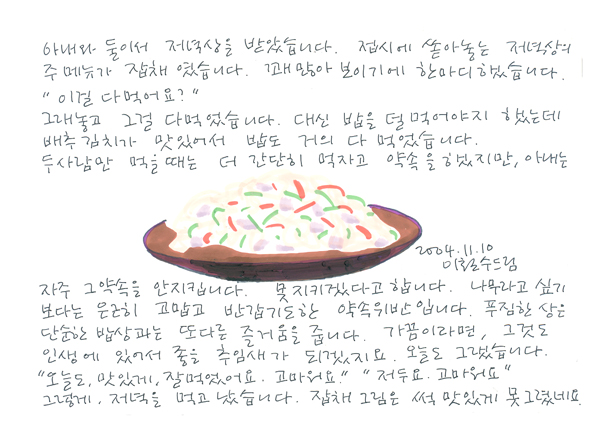 아내와 둘이서 저녁상을 받았습니다. 접시에 쏟아놓는 저녁상의
주 메뉴가 잡채 였습니다. 꽤 많아 보이기에 한마디 했습니다.
"이걸 다 먹어요?"
그래놓고 그걸 다 먹었습니다. 대신 밥을 덜 먹어야지 했는데
배추김치가 맛있어서 밥도 거의 다 먹었습니다.
두사람만 먹을때는 더 간단히 먹자고 약속을 하였지만, 아내는
2004.11.10
이철수드림
자주 그 약속을 안지킵니다. 못 지키겠다고 합니다. 나무라고 싶기
보다는 은근히 고맙고 반갑기도한 약속위반입니다. 푸짐한 상은
단순한 밥상과는 또다른 즐거움을 줍니다. 가끔이라면, 그것도
인생에 있어서 좋을 추임새가 되겠지요. 오늘도 그랬습니다.
"오늘도, 맛있게, 잘먹었어요. 고마워요." "저두요. 고마워요"
그렇게, 저녁을 먹고 났습니다. 잡채 그림은 썩 맛있게 못그렸네요.